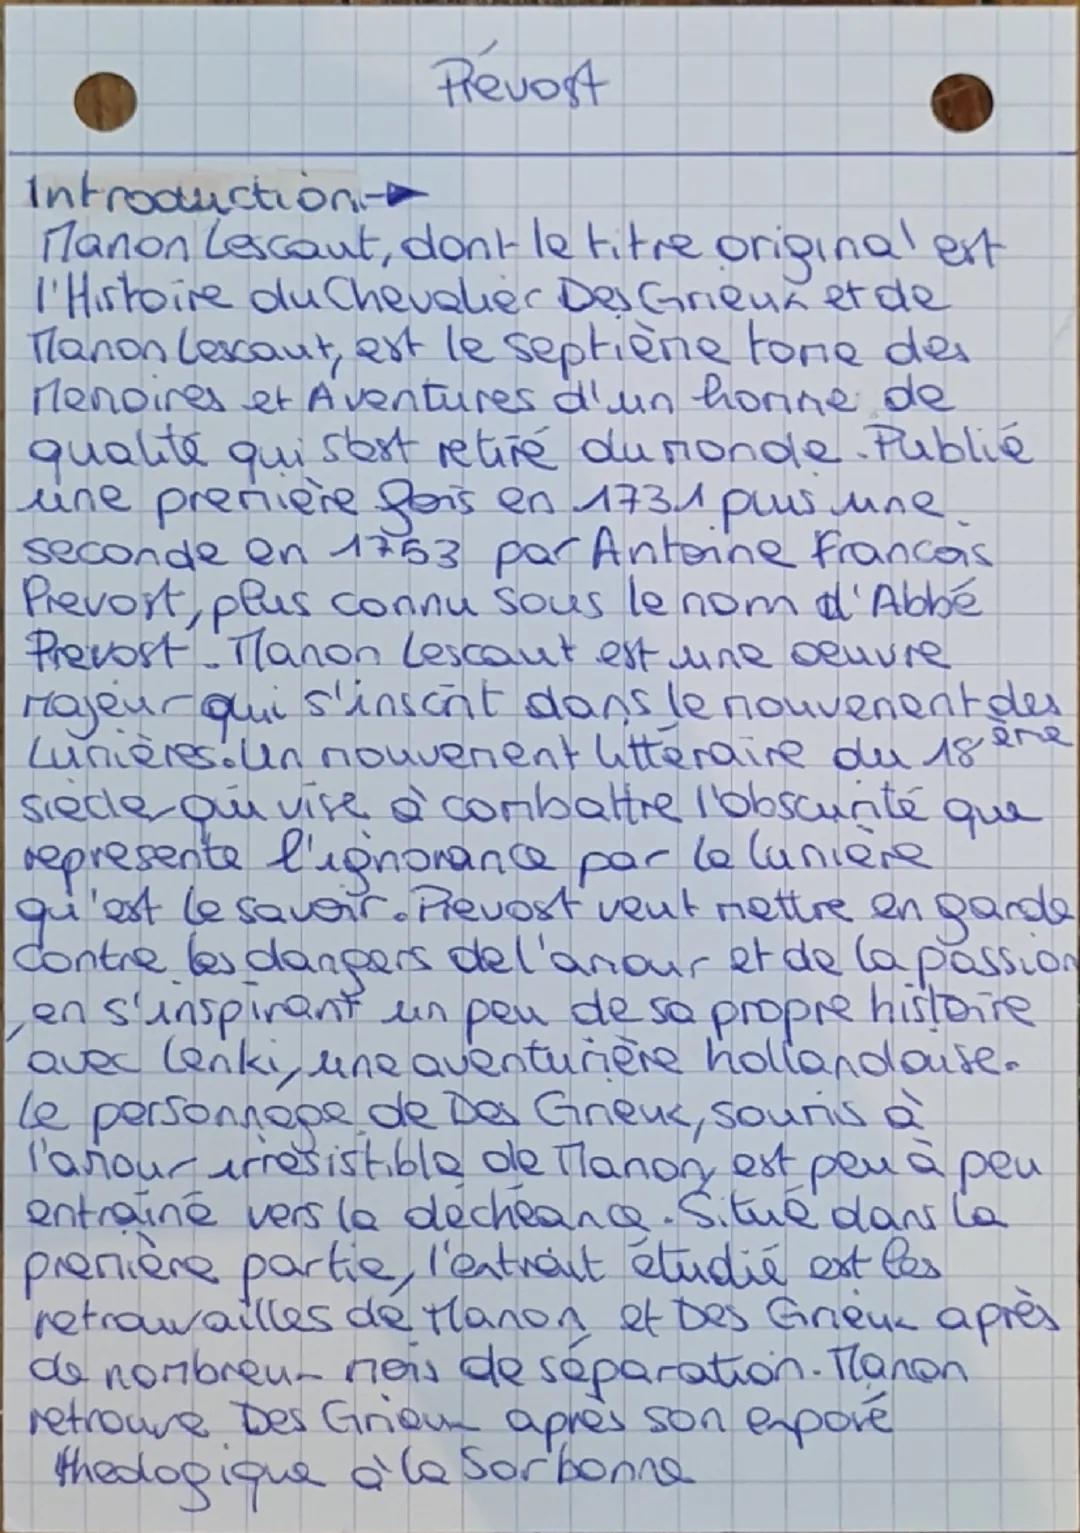 Prévost
Introduction →
Manon Lescaut, dont le titre original est
l'Histoire du Chevalier Des Grieux et de
Manon Lescaut, est le septième tome des
Memoires et Aventures d'un homme de
qualité qui s'est retiré du monde. Publié
une première fois en 1731 puis une
seconde en 1753 par Antoine François
Prevost, plus connu sous le nom d'Abbé
Prevost. Manon Lescaut est une oeuvre
majeur qui s'inscrit dans le mouvement des
Lumières. Un mouvement littéraire du 18ème
siècle qui vise à combattre l'obscurité que
représente l'ignorance par la lumière
qu'est le savoir. Prevost veut mettre en garde
contre les dangers de l'amour et de la passion
, en s'inspirant un peu de sa propre histoire
avec Lenki, une aventurière hollandaise.
Le personnage de Des Grieux, soumis à
l'amour irrésistible de Manon, est peu à peu
entraîné vers la déchéance. Situé dans la
première partie, l'extrait étudié est les
retrouvailles de Manon et Des Grieux après
de nombreux mois de séparation. Manon
retrouve Des Grieux après son exposé
théologique à la Sorbonne